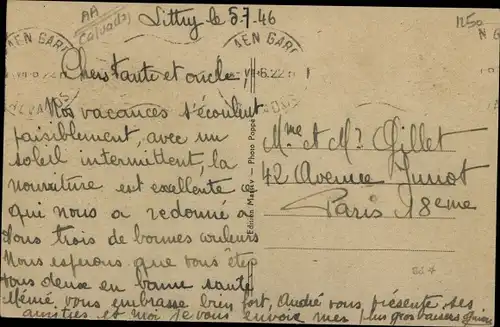 AA
Calvados
Littry le 8.7.46
1250
N G
AEN GARE
AEN GARE
CALVADOS
Chers tante et oncle,
Nos vacances s'écoulent
paisiblement, avec un
soleil intermittent, la
nourriture est excellente
qui nous a redonné à
tous trois de bonnes couleurs
Nous espérons que vous êtes
tous deux en bonne santé
Mémé vous embrasse bien fort, André vous présente ses
amitiés et moi je vous envoie mes plus gros baisers
Photo Poppé
Mme et Mr Gillet
42 Avenue Junot
Paris 18eme